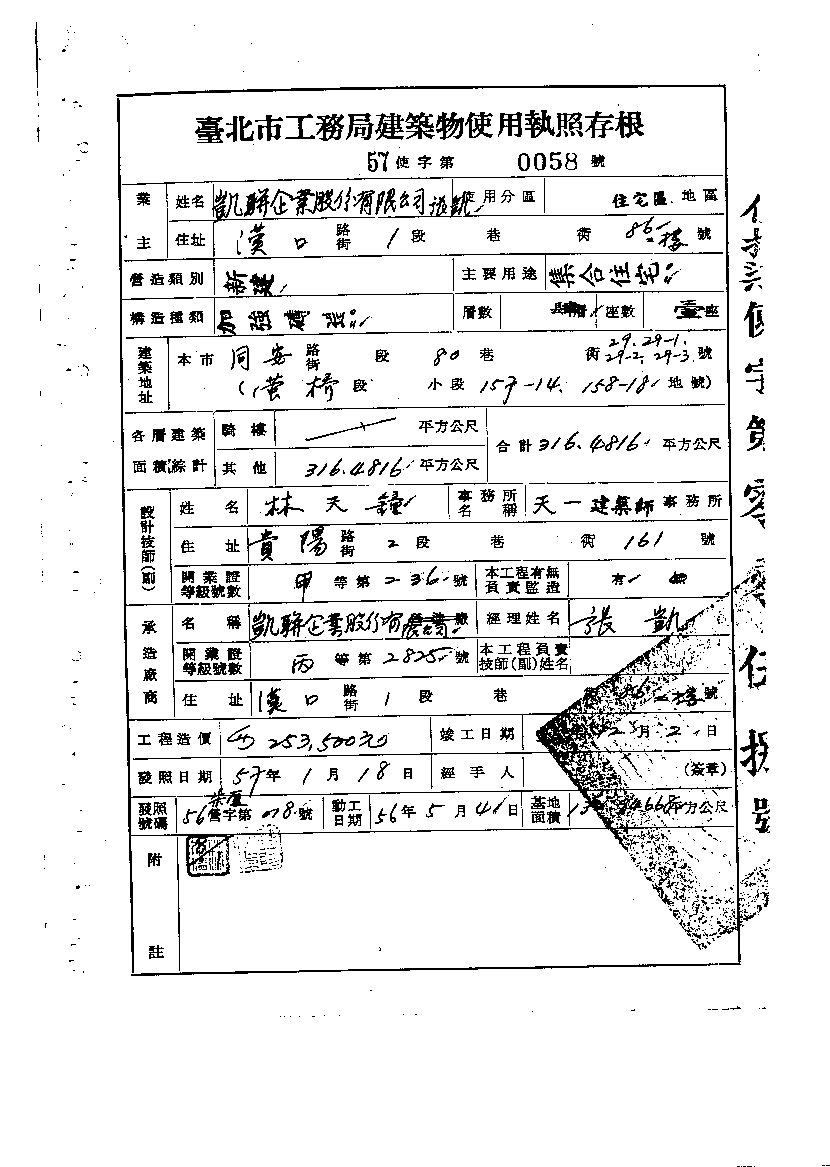 臺北市工務局建築物使用執照存根
57使字第 0058 號
業主 姓名 凱聯企業股份有限公司 張凱 使用分區 住宅區 地區
住址 漢口 路街 1 段 巷 街 86 二樓 號
營造類別 新建 主要用途 集合住宅
構造種類 加強磚造 層數 座數 壹座
建築地址 本市 同安 路街 段 80 巷 街 29.29-1. 29-2. 29-3. 號
(螢橋 段 小段 157-14. 158-18. 地號)
各層建築面積綜計 騎樓 平方公尺 合計 316.4816 平方公尺
其他 316.4816 平方公尺
設計技師(副) 姓名 林天鐘 事務所名稱 天一建築師 事務所
住址 貴陽 路街 2 段 巷 街 161 號
開業證等級號數 甲 等第 236 號 本工程有無負責監造 有
承造廠商 名稱 凱聯企業股份有限 經理姓名 張凱
開業證等級號數 丙 等第 2825 號 本工程負責技師(副)姓名
住址 漢口 路街 1 段 巷 街 86 二樓 號
工程造價 253,500元 竣工日期 12 月 2 日
發照日期 57 年 1 月 18 日 經手人 (簽章)
發照號碼 56 營字第 號 動工日期 56 年 5 月 4 日 基地面積 平方公尺
附註